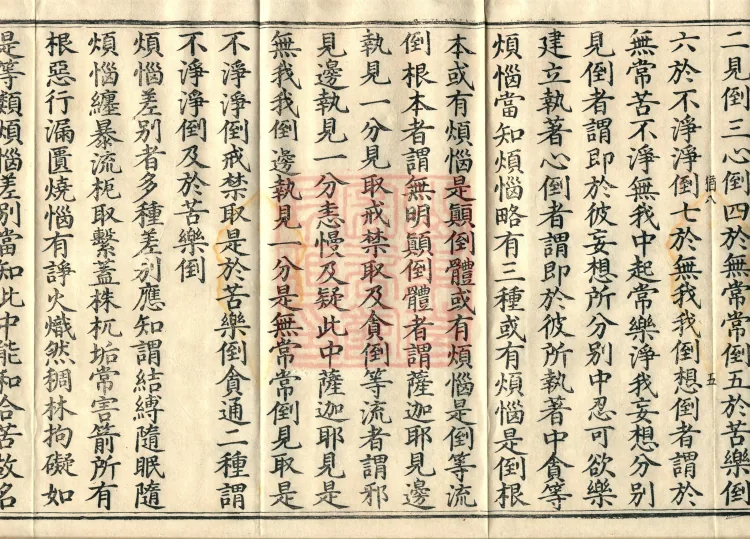 二見倒三心倒四於無常常倒五於苦樂倒
六於不淨淨倒七於無我我倒想倒者謂於
無常苦不淨無我中起常樂淨我妄想分別
見倒者謂即於彼妄想所分別中忍可欲樂
建立執著心倒者謂即於彼所執著中貪等
煩惱當知煩惱略有三種或有煩惱是倒根
本或有煩惱是顛倒體或有煩惱是倒等流
倒根本者謂無明顛倒體者謂薩迦耶見邊
執見一分見取戒禁取及貪倒等流者謂邪
見邊執見一分恚慢及疑此中薩迦耶見是
無我我倒邊執見一分是無常常倒見取是
不淨淨倒戒禁取是於苦樂倒貪通二種謂
不淨淨倒及於苦樂倒
煩惱差别者多種差别應知謂結縛隨眠隨
煩惱纏暴流枙取繫蓋株杌垢常害箭所有
根惡行漏匱燒惱有諍火熾然稠林拘礙如
是等類煩惱差别當知此中能和合苦故名
八
五